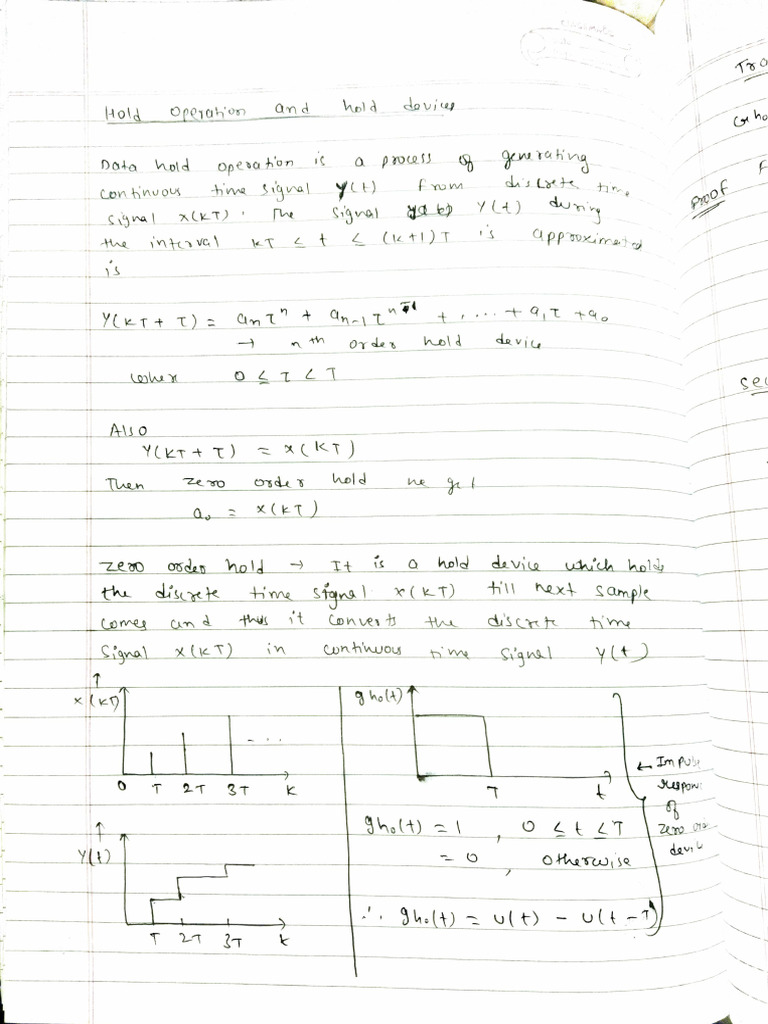 Hold operation and hold devices
Data hold operation is a process of generating
continuous time signal y(t) from discrete time
signal x(kT). The signal y(t) during
the interval kT ≤ t ≤ (k+1)T is approximated
is
Y(kT + τ) = anτ^n + an-1τ^n-1 + , ... + a1τ + a0
→ nth order hold device
where 0 ≤ τ < T
Also
Y(kT + τ) = x(kT)
Then zero order hold we get
a0 = x(kT)
Zero order hold → It is a hold device which holds
the discrete time signal x(kT) till next sample
comes and thus it converts the discrete time
signal x(kT) in continuous time signal y(t)
↑
x(kT)
- ...
0 T 2T 3T k
↑
Y(t)
T 2T 3T k
gho(t)
T t
gho(t) = 1 , 0 ≤ t ≤ T
= 0 , otherwise
∴ gho(t) = u(t) - u(t-T)
← Impulse
respon
of
zero or
devic
Tra
Gho
Proof F
Sec